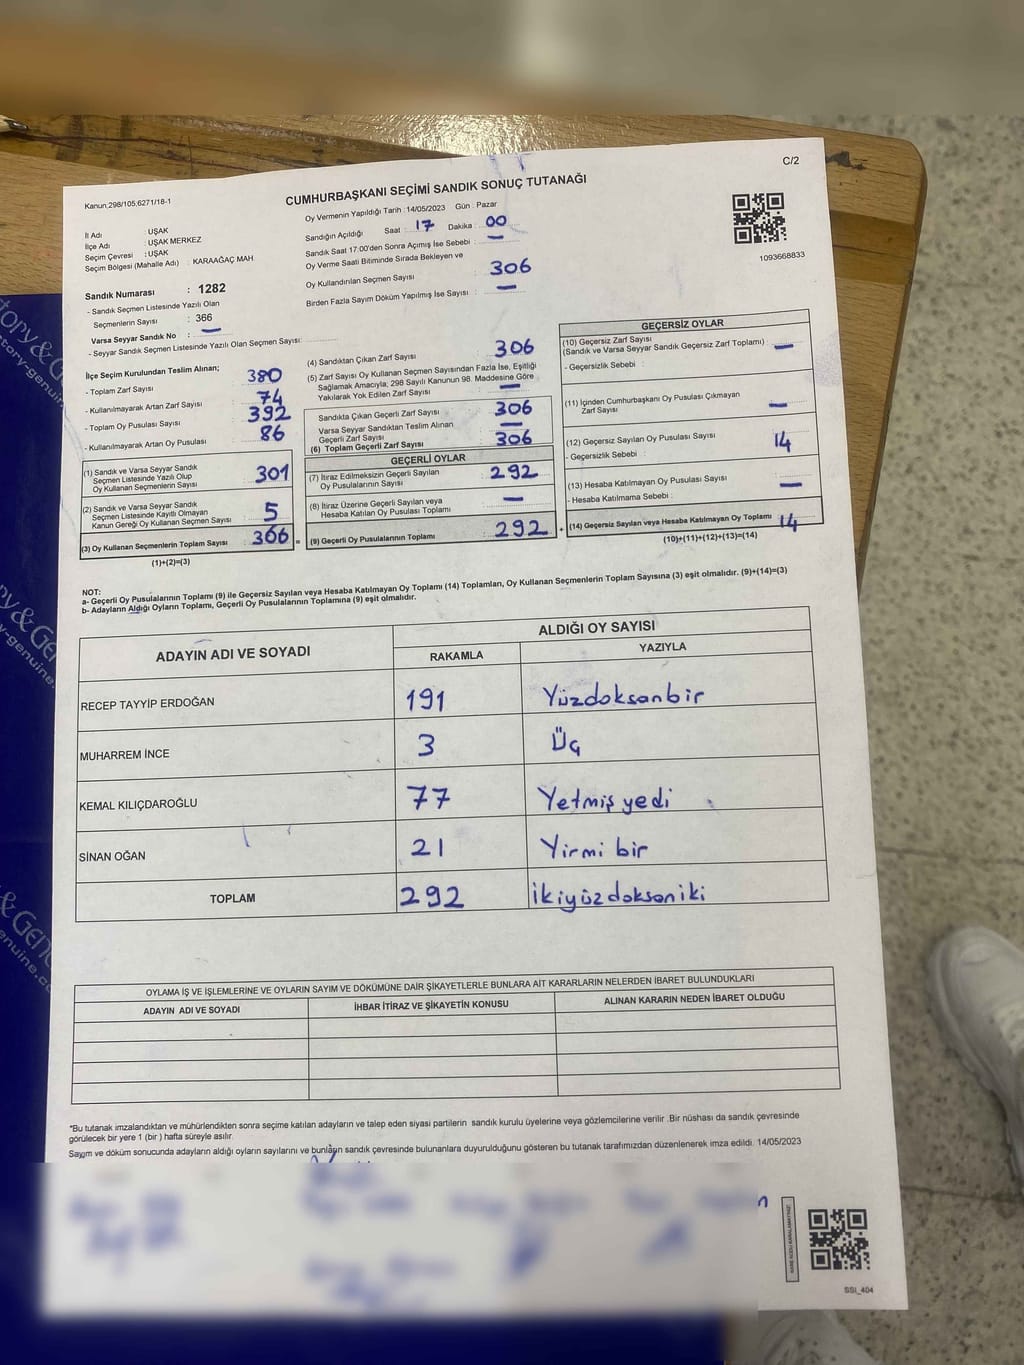 C/2
Kanun,298/105;6271/18-1
CUMHURBAŞKANI SEÇİMİ SANDIK SONUÇ TUTANAĞI
İl Adı : UŞAK
İlçe Adı : UŞAK MERKEZ
Seçim Çevresi : UŞAK
Seçim Bölgesi (Mahalle Adı) : KARAAĞAÇ MAH
Oy Vermenin Yapıldığı Tarih : 14/05/2023 Gün : Pazar
Sandığın Açıldığı Saat : 17 Dakika : 00
Sandık Saat 17:00'den Sonra Açımış İse Sebebi : —
Oy Verme Saati Bitiminde Sırada Bekleyen ve
Oy Kullandırılan Seçmen Sayısı : 306
Birden Fazla Sayım Döküm Yapılmış İse Sayısı : —
1093668833
Sandık Numarası : 1282
- Sandık Seçmen Listesinde Yazılı Olan
Seçmenlerin Sayısı : 366
Varsa Seyyar Sandık No : —
- Seyyar Sandık Seçmen Listesinde Yazılı Olan Seçmen Sayısı:
İlçe Seçim Kurulundan Teslim Alınan;
- Toplam Zarf Sayısı : 380
- Kullanılmayarak Artan Zarf Sayısı : 74
- Toplam Oy Pusulası Sayısı : 392
- Kullanılmayarak Artan Oy Pusulası : 86
(1) Sandık ve Varsa Seyyar Sandık
Seçmen Listesinde Yazılı Olup
Oy Kullanan Seçmenlerin Sayısı : 301
(2) Sandık ve Varsa Seyyar Sandık
Seçmen Listesinde Kayıtlı Olmayan
Kanun Gereği Oy Kullanan Seçmen Sayısı : 5
(3) Oy Kullanan Seçmenlerin Toplam Sayısı : 366 =
(1)+(2)=(3)
(4) Sandıktan Çıkan Zarf Sayısı : 306
(5) Zarf Sayısı Oy Kullanan Seçmen Sayısından Fazla İse, Eşitliği
Sağlamak Amacıyla; 298 Sayılı Kanunun 98. Maddesine Göre
Yakılarak Yok Edilen Zarf Sayısı : —
Sandıkta Çıkan Geçerli Zarf Sayısı : 306
Varsa Seyyar Sandıktan Teslim Alınan
Geçerli Zarf Sayısı : —
(6) Toplam Geçerli Zarf Sayısı : 306
GEÇERLİ OYLAR
(7) İtiraz Edilmeksizin Geçerli Sayılan
Oy Pusulalarının Sayısı : 292
(8) İtiraz Üzerine Geçerli Sayılan veya
Hesaba Katılan Oy Pusulası Toplamı : —
(9) Geçerli Oy Pusulalarının Toplamı : 292 +
GEÇERSİZ OYLAR
(10) Geçersiz Zarf Sayısı
(Sandık ve Varsa Seyyar Sandık Geçersiz Zarf Toplamı) : —
- Geçersizlik Sebebi :
(11) İçinden Cumhurbaşkanı Oy Pusulası Çıkmayan
Zarf Sayısı : —
(12) Geçersiz Sayılan Oy Pusulası Sayısı : 14
- Geçersizlik Sebebi :
(13) Hesaba Katılmayan Oy Pusulası Sayısı : —
- Hesaba Katılmama Sebebi :
(14) Geçersiz Sayılan veya Hesaba Katılmayan Oy Toplamı : 14
(10)+(11)+(12)+(13)=(14)
NOT:
a- Geçerli Oy Pusulalarının Toplamı (9) ile Geçersiz Sayılan veya Hesaba Katılmayan Oy Toplamı (14) Toplamları, Oy Kullanan Seçmenlerin Toplam Sayısına (3) eşit olmalıdır. (9)+(14)=(3)
b- Adayların Aldığı Oyların Toplamı, Geçerli Oy Pusulalarının Toplamına (9) eşit olmalıdır.
ADAYIN ADI VE SOYADI ALDIĞI OY SAYISI
RAKAMLA YAZIYLA
RECEP TAYYİP ERDOĞAN 191 Yüzdoksanbir
MUHARREM İNCE 3 Üç
KEMAL KILIÇDAROĞLU 77 Yetmiş yedi
SİNAN OĞAN 21 Yirmi bir
TOPLAM 292 ikiyüzdoksaniki
OYLAMA İŞ VE İŞLEMLERİNE VE OYLARIN SAYIM VE DÖKÜMÜNE DAİR ŞİKAYETLERLE BUNLARA AİT KARARLARIN NELERDEN İBARET BULUNDUKLARI
ADAYIN ADI VE SOYADI İHBAR İTİRAZ VE ŞİKAYETİN KONUSU ALINAN KARARIN NEDEN İBARET OLDUĞU
*Bu tutanak imzalandıktan ve mühürlendikten sonra seçime katılan adayların ve talep eden siyasi partilerin sandık kurulu üyelerine veya gözlemcilerine verilir .Bir nüshası da sandık çevresinde
görülecek bir yere 1 (bir ) hafta süreyle asılır.
Sayım ve döküm sonucunda adayların aldığı oyların sayılarını ve bunların sandık çevresinde bulunanlara duyurulduğunu gösteren bu tutanak tarafımızdan düzenlenerek imza edildi. 14/05/2023
SSI_404